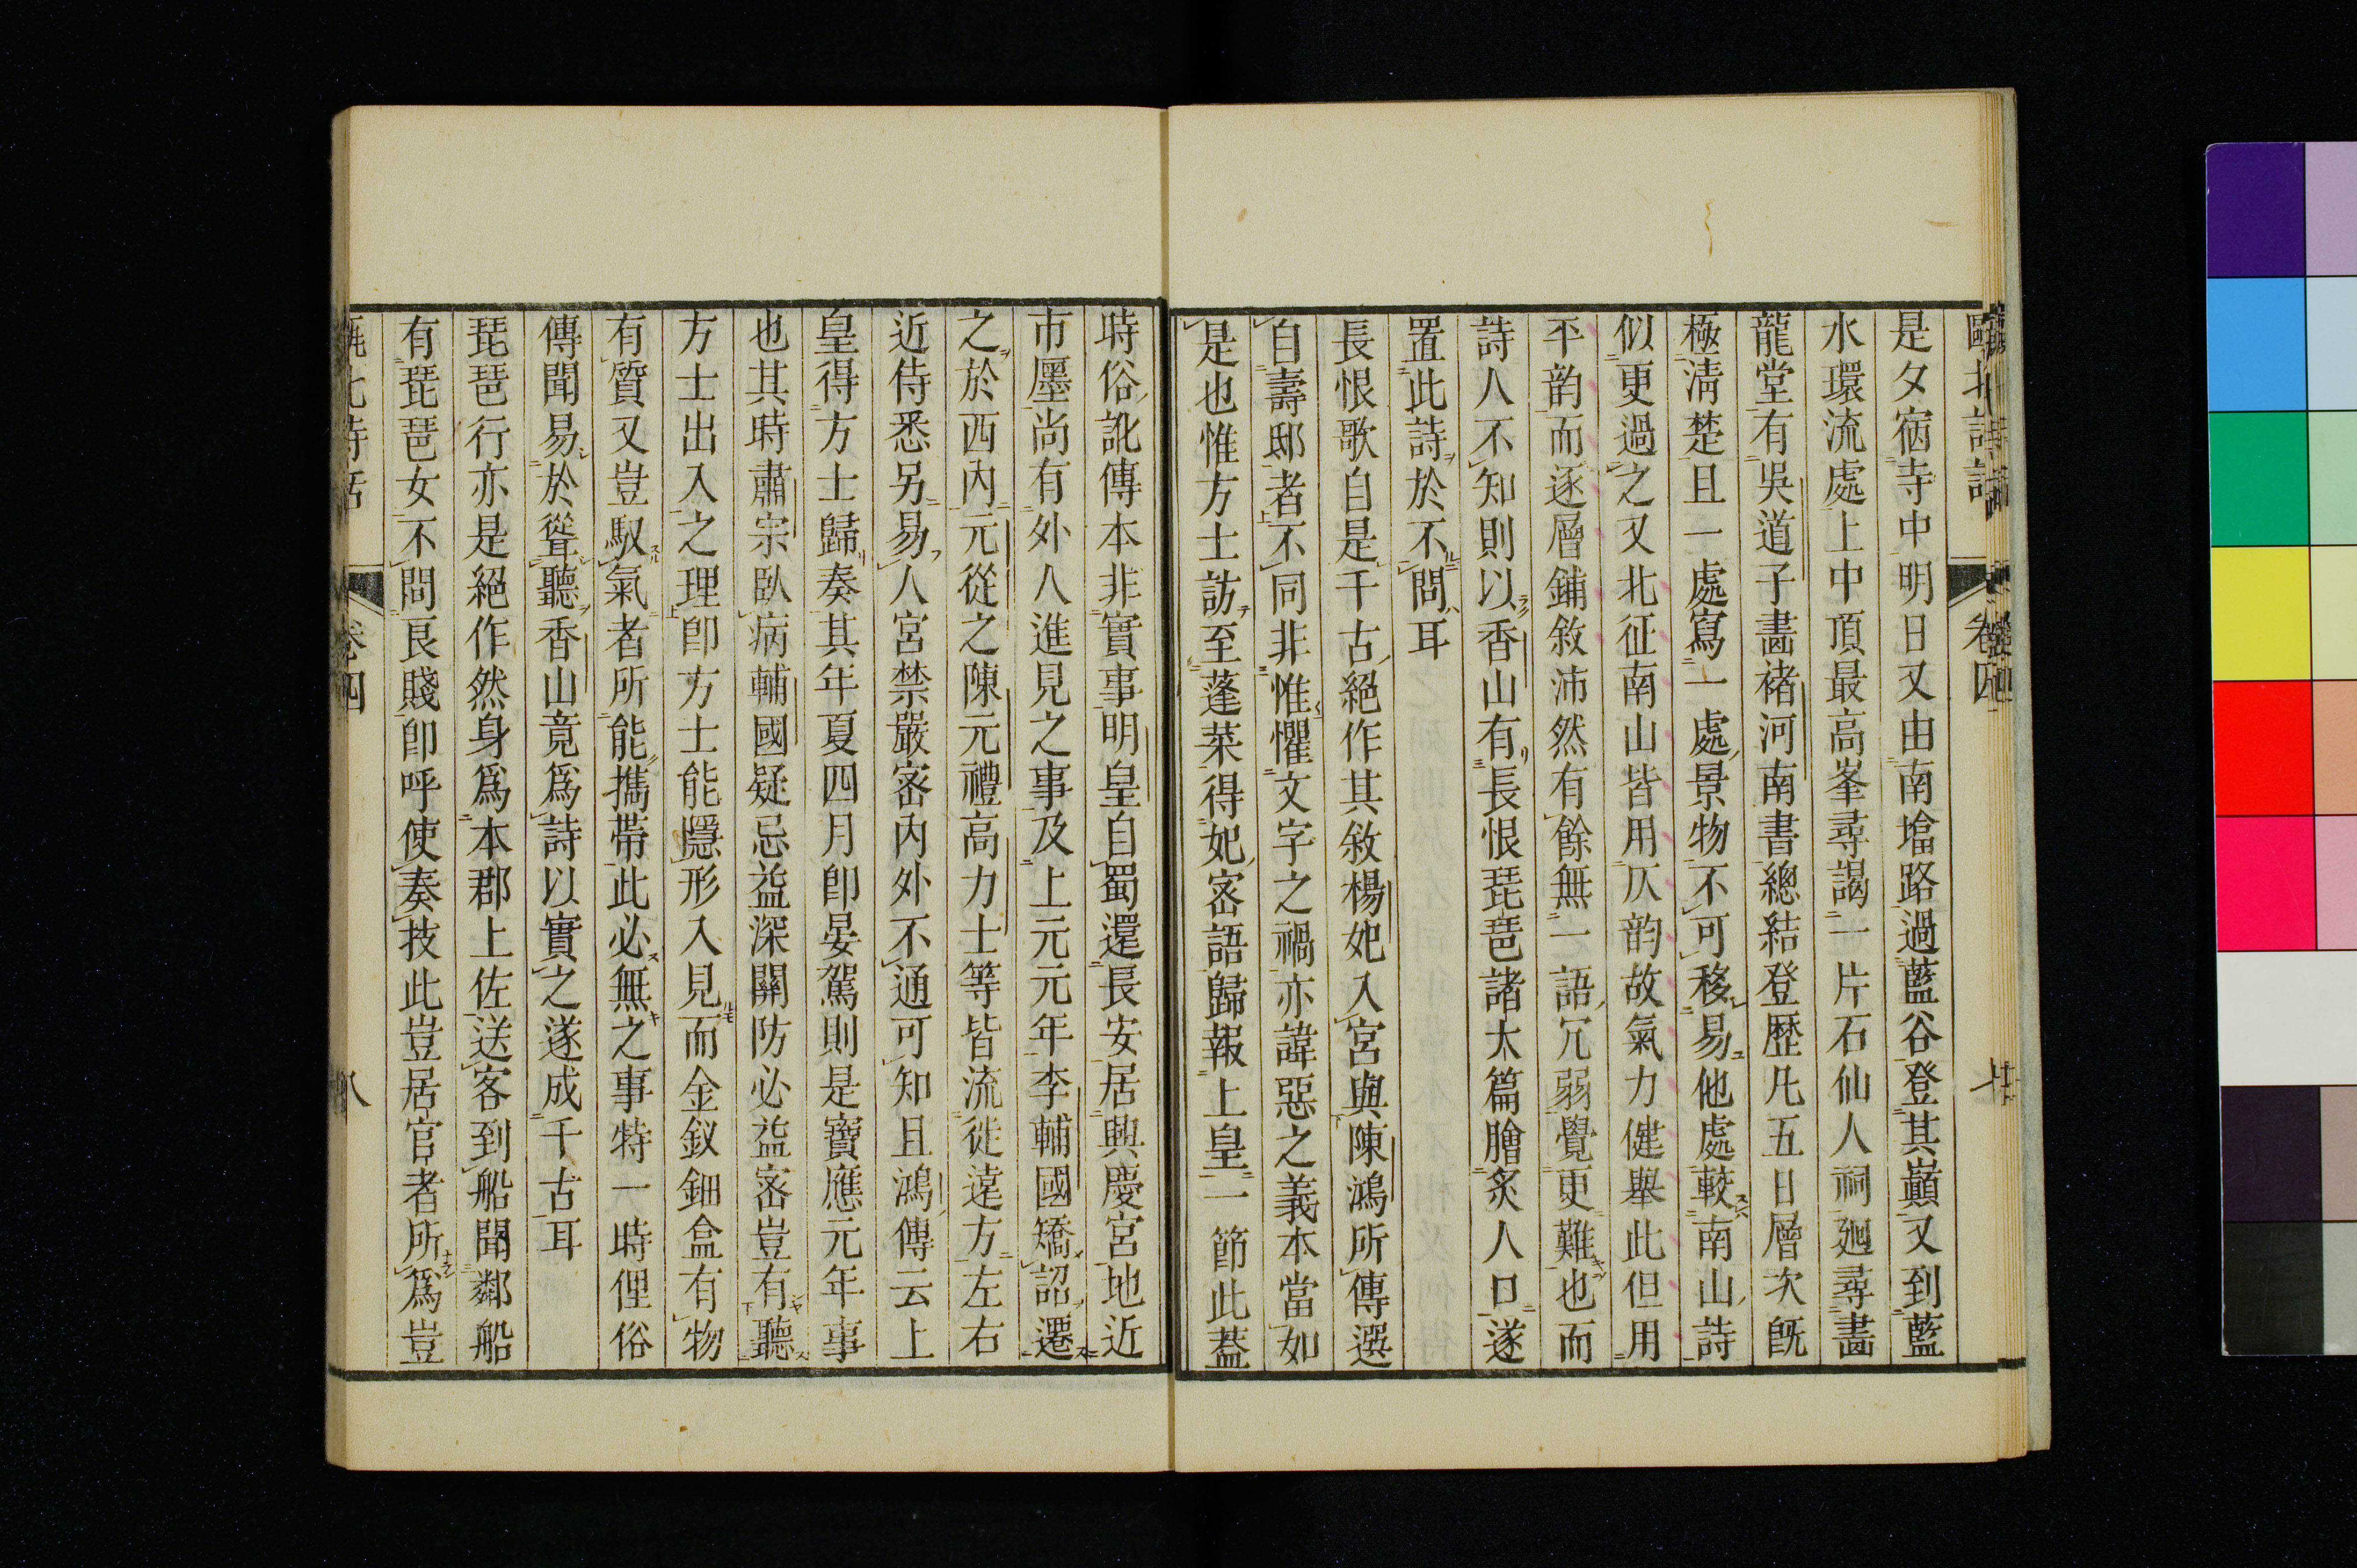 是夕宿寺中明日又由南墖路過藍谷登其巔又到藍
水環流處上中頂最高峯尋謁一片石仙人祠廻尋畫
龍堂有吳道子畵褚河南書總結登歷凡五日層次旣
極淸楚且一處寫一處景物不可移易他處較南山詩
似更過之又北征南山皆用仄韵故氣力健舉此但用
平韵而逐層鋪敘沛然有餘無一語冗弱覺更難也而
詩人不知則以香山有長恨琵琶諸大篇膾炙人口遂
置此詩於不問耳
長恨歌自是千古絕作其敘楊妃入宮與陳鴻所傳選
自壽邸者不同非惟懼文字之禍亦諱惡之義本當如
是也惟方士訪至蓬萊得妃宻語歸報上皇一節此蓋
時俗訛傳本非實事明皇自蜀還長安居興慶宮地近
市廛尚有外人進見之事及上元元年李輔國矯詔遷
之於西內元從之陳元禮高力士等皆流徙遠方左右
近侍悉另易人宮禁嚴宻內外不通可知且鴻傳云上
皇得方士歸奏其年夏四月卽晏駕則是寶應元年事
也其時肅宗臥病輔國疑忌益深關防必益宻豈有聽
方士出入之理卽方士能隱形入見而金釵鈿盒有物
有質又豈馭氣者所能攜帶此必無之事特一時俚俗
傳聞易於聳聽香山竟爲詩以實之遂成千古耳
琵琶行亦是絕作然身爲本郡上佐送客到船聞鄰船
有琵琶女不問良賤卽呼使奏技此豈居官者所爲豈